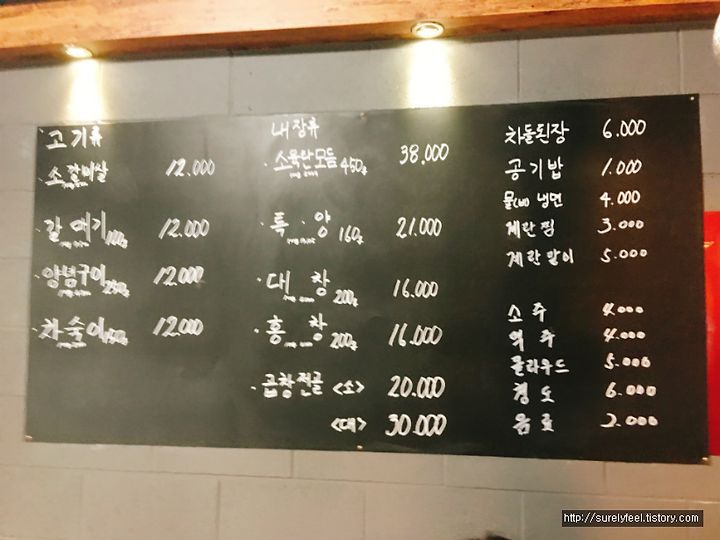 고기류
소갈비살 12.000
갈매기 100g 12.000
양념구이 250g 12.000
차숙이 150g 12.000
내장류
소육란모듬 450g 38.000
특 양 160g 21.000
대 창 200g 16.000
홍 창 200g 16.000
곱창전골 <소> 20.000
<대> 30.000
차돌된장 6.000
공기밥 1.000
물(비) 냉면 4.000
계란찜 3.000
계란말이 5.000
소주 4.000
맥주 4.000
클라우드 5.000
청도 6.000
음료 2.000
http://surelyfeel.tistory.com